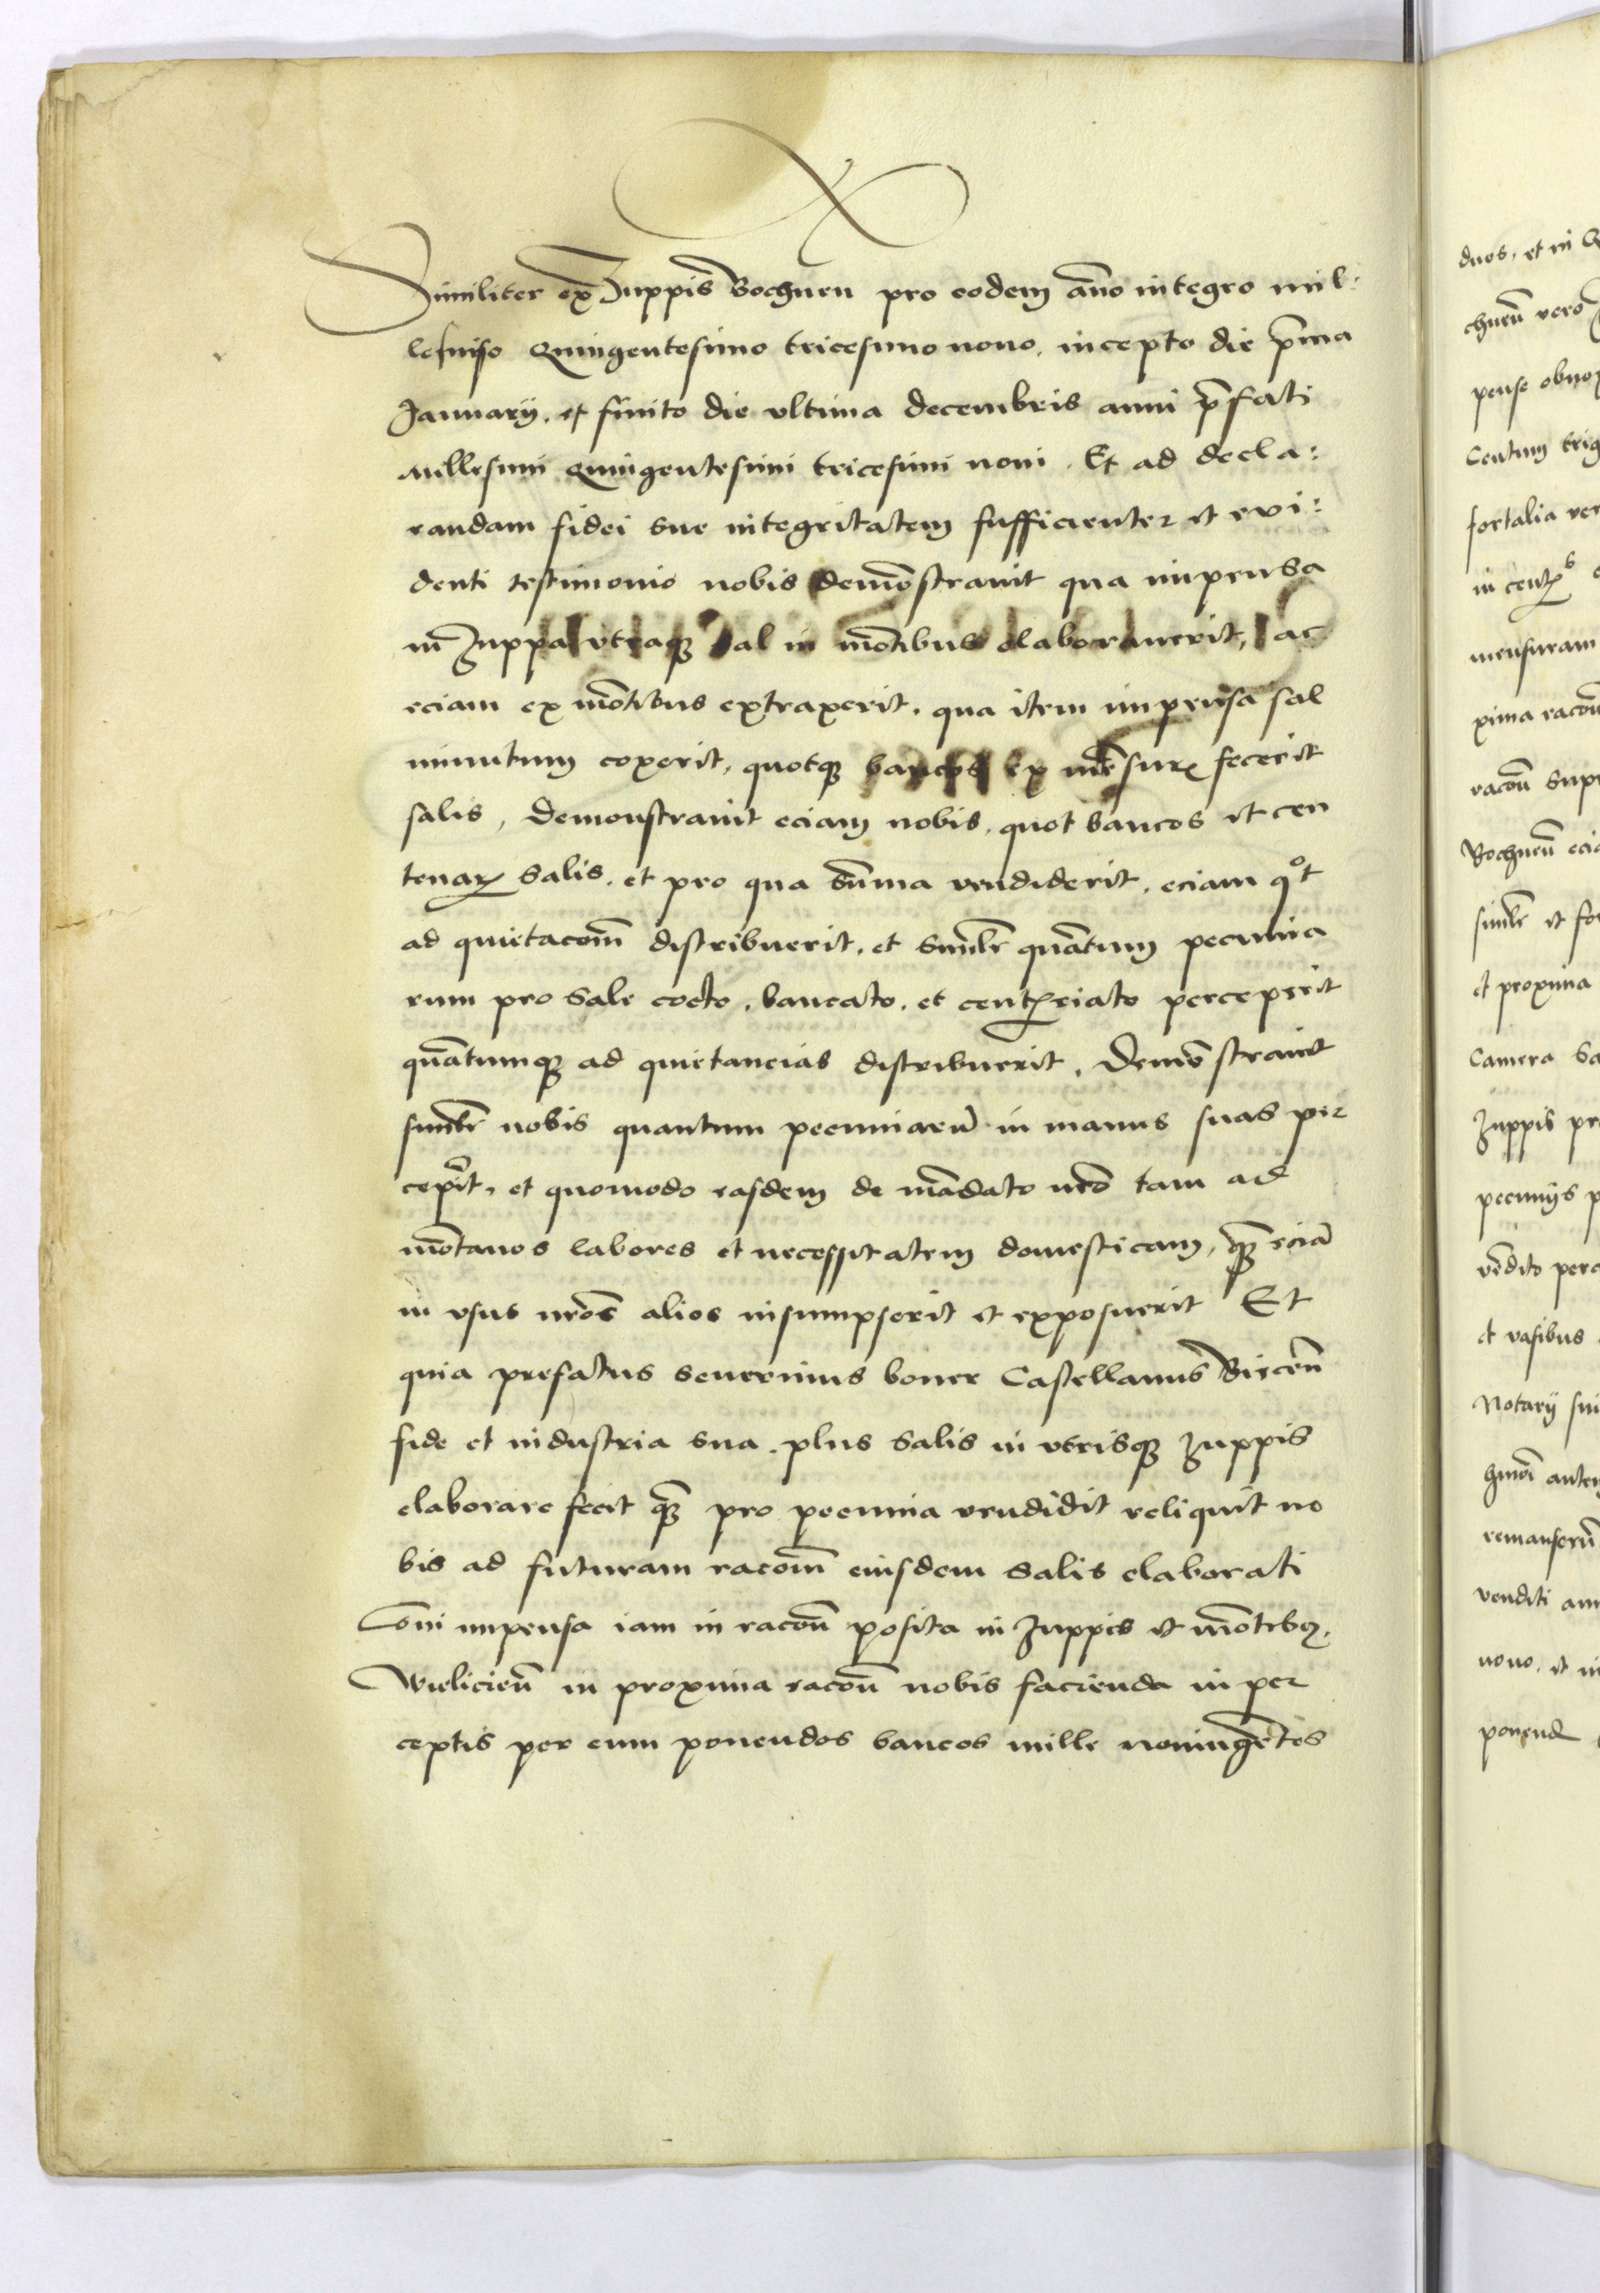 Similiter ex Zuppis Bochnen pro eodem año integro mil:
lesimo Quingentesimo tricesimo nono, incepto die p̄ma
Januarij, et finito die vltima decembris anni p̄fati
millesimi Quingentesimi tricesimi noni. Et ad decla:
randam fidei sue integritatem sufficienter et evi:
denti testimonio nobis demōstrauit qua impensa
in Zuppa vtraq3 sal in mōtibus elaborauerit, ac
eciam ex mōtibus extraxerit, qua item impensa sal
minutum coxerit, quotq3 bancos ex mēsurꝭ fecerit
salis, demonstrauit eciam nobis, quot bancos et cen
tenarꝭ Salis, et pro qua sūma vendiderit, eciam qot
ad quietacōm distribuerit, et similr quātum pecunia
rum pro Sale cocto, bancato, et centꝛiato perceperit
quātumq3 ad quietancias distribuerit, Demōstrauit
similr nobis quantum pecuniarū in manus suas per
cepīt, et quomodo easdem de mādato nrō tam ad
mōtanos labores et necessitatem domesticam, q̄3 eciā
in vsus nrōs alios insumpserit et exposuerit Et
quia prefatus Seuerinus boner Castellanus Biecēn
fide et industria sua, plus Salis in vtrisq3 Zuppis
elaborare fecit q̄3 pro pecunia vendidit reliquit no
bis ad futuram racōm eiusdem Salis elaborati
Cōi impensa iam in racōn posita in Zuppis et mōtibꝫ
Wieliciēn in proxima racōn nobis facienda in per
ceptis per eum ponendos bancos mille noningētos
duos, et in
chnēn vero
pense obnox
Centum trig
fortalia ver
mensuram
xima racōn
racōn Supr
Bochnēn ecia
similr et fo
et proxima
Camera Sa
Zuppis pr
pecunijs p
vēdito perc
et vasibus
Notarij sui
remanserūt
venditi ann
nono, et in
ponend